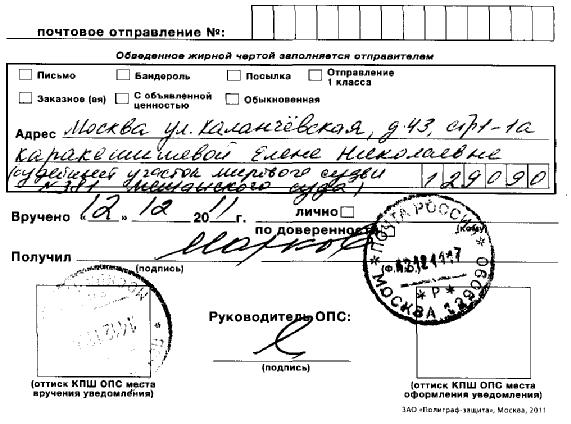 почтовое отправление №:
Обведенное жирной чертой заполняется отправителем
Письмо Бандероль Посылка Отправление 1 класса
Заказное (ая) С объявленной ценностью Обыкновенная
Адрес Москва ул. Каланчёвская, д.43, стр1-1а
Каракешишевой Елене Николаевне
(судебный участок мирового судьи
№ 381 Мещанского суда) 129090
Вручено "12" 12 2011 г. лично
по доверенности (кому)
Получил Марков
(подпись) (Ф.И.О.)
ПОЧТА РОССИИ
МОСКВА 129090
* Р *
Руководитель ОПС:
(подпись)
(оттиск КПШ ОПС места вручения уведомления)
(оттиск КПШ ОПС места оформления уведомления)
ЗАО «Полиграф-защита», Москва, 2011